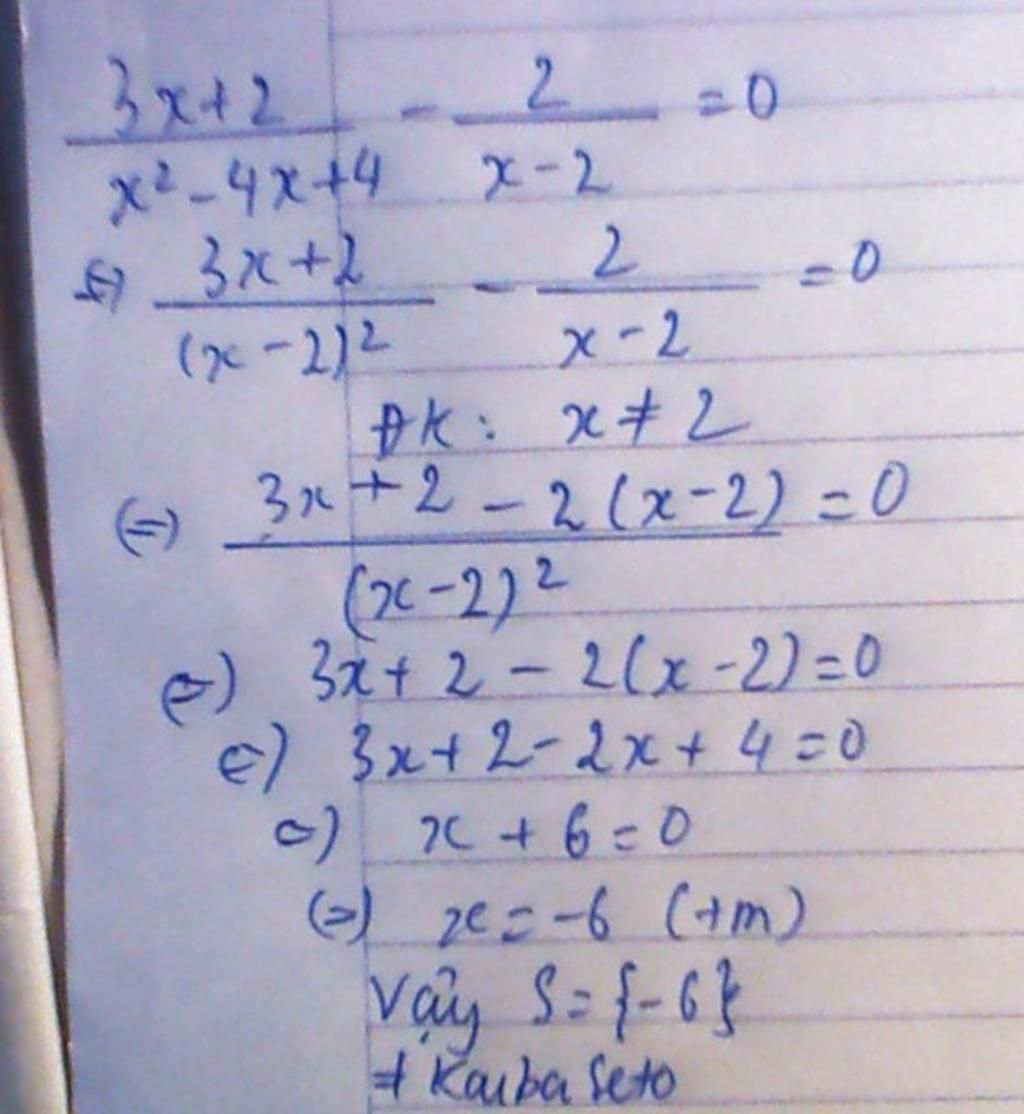 3x+2 / x² - 4x + 4 - 2 / x - 2 = 0
⇔ 3x+2 / (x-2)² - 2 / x-2 = 0
ĐK: x ≠ 2
(=) 3x + 2 - 2(x-2) / (x-2)² = 0
(=) 3x + 2 - 2(x-2) = 0
(=) 3x + 2 - 2x + 4 = 0
(=) x + 6 = 0
(=) x = -6 (+m)
Vậy S = {-6}
# Kaiba Seto